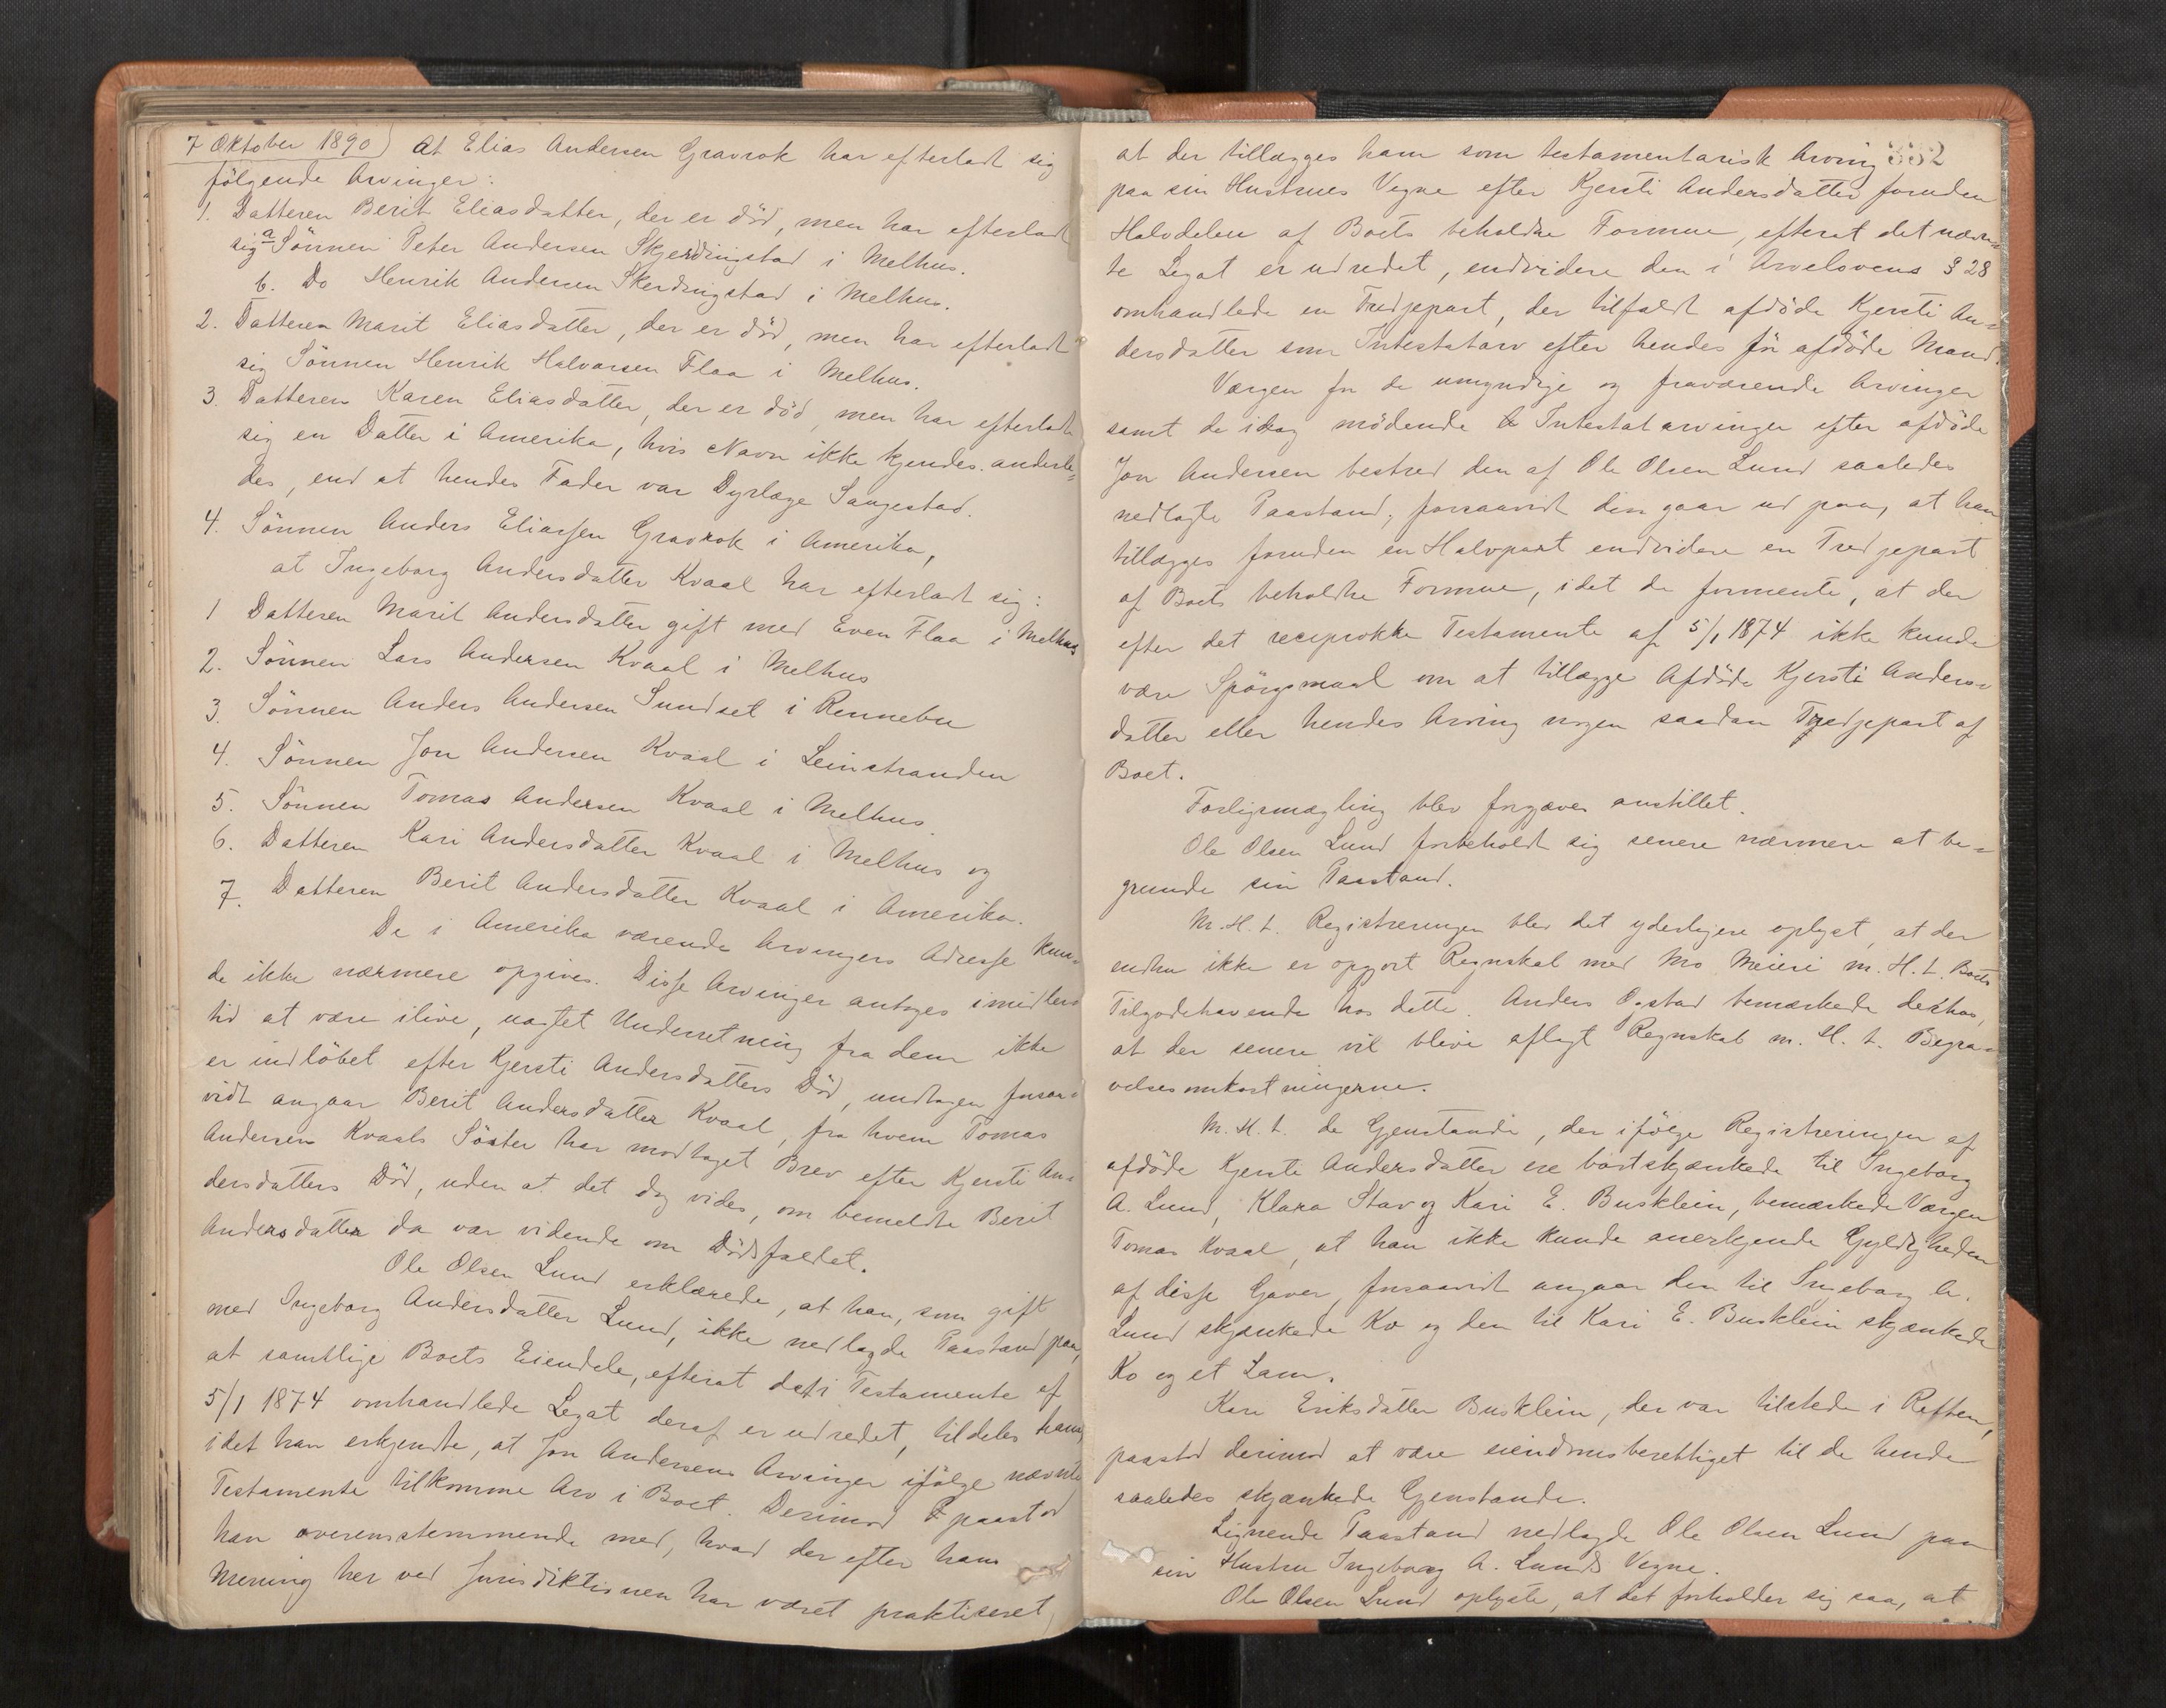 7 Oktober 1890) At Elias Andersen Gravrok har efterladt sig
følgende Arvinger:
1. Datteren Berit Eliasdatter, der er död, men har efterladt
sig a Sönnen Peter Andersen Skjerdingstad i Melhus.
b. Do Henrik Andersen Skerdingstad i Melhus.
2. Datteren Marit Eliasdatter, der er död, men har efterladt
sig Sönnen Henrik Halvorsen Flaa i Melhus.
3. Datteren Karen Eliasdatter, der er död, men har efterladt
sig en Datter i Amerika, hvis Navn ikke kjendes anderle=
des, end at hendes Fader var Dyrlæge Saugestad.
4. Sönnen Anders Eliassen Gravrok i Amerika,
at Ingeborg Andersdatter Kvaal har efterladt sig:
1 Datteren Marit Andersdatter gift med Even Flaa i Melhus
2. Sönnen Lars Andersen Kvaal i Melhus
3. Sönnen Anders Andersen Sundset i Rennebu
4. Sönnen Jon Andersen Kvaal i Leinstranden
5. Sönnen Tomas Andersen Kvaal i Melhus.
6. Datteren Kari Andersdatter Kvaal i Melhus og
7. Datteren Berit Andersdatter Kvaal i Amerika.
De i Amerika værende Arvingers Adresse kun=
de ikke nærmere opgives. Disse Arvinger antoges imidler
tid at være ilive, uagtet Underretning fra dem ikke
er indlöbet efter Kjersti Andersdatters Död, undtagen forsaa=
vidt angaar Berit Andersdatter Kvaal, fra hvem Tomas
Andersen Kvaals Söster har modtaget Brev efter Kjersti An=
dersdatters Död, uden at det dog vides, om bemeldte Berit
Andersdatter da var vidende om Dödsfaldet.
Ole Olsen Lund erklærede, at han, som gift
med Ingeborg Andersdatter Lund, ikke nedlagde Paastand paa,
at samtlige Boets Eiendele, efterat det i Testamente af
5/1 1874 omhandlede Legat deraf er udredet, tildeles ham,
idet han erkjendte, at Jon Andersens Arvinger ifölge nævnte
Testamente tilkomme Arv i Boet. Derimod paastod
han overensstemmende med, hvad der efter hans
Mening her ved Jurisdiktionen har været praktiseret,
332
at der tillægges ham som testamentarisk Arving
paa sin Hustrues Vegne efter Kjersti Andersdatter foruden
Halvdelen af Boets beholdne Formue, efterat det nævn=
te Legat er udredet, endvidere den i Arvelovens § 28
omhandlede en Tredjepart, der tilfaldt afdöde Kjersti An=
dersdatter som Intestatarv efter hendes för afdöde Mand.
Værgen for de umyndige og fraværende Arvinger
samt de idag mödende Intestatarvinger efter afdöde
Jon Andersen bestred den af Ole Olsen Lund saaledes
nedlagte Paastand, forsaavidt den gaar ud paa, at han
tillægges foruden en Halvpart endvidere en Tredjepart
af Boets beholdne Formue, idet de formente, at der
efter det reciprokke Testamente af 5/1 1874 ikke kunde
være Spörgsmaal om at tillægge Afdöde Kjersti Anders=
datter eller hendes Arving nogen saadan Tredjepart af
Boet.
Forligsmægling blev forgjæves anstillet.
Ole Olsen Lund forbeholdt sig senere nærmere at be=
grunde sin Paastand.
M. H. t. Registreringen blev det yderligere oplyst, at der
endnu ikke er opgjort Regnskab med Mo Meieri m. H. t. Boets
Tilgodehavende hos dette. Anders Ogstad bemærkede deshos,
at der senere vil blive aflagt Regnskab m. H. t. Begra=
velsesomkostningerne.
M. H. t. de Gjenstande, der ifölge Registreringen af
afdöde Kjersti Andersdatter ere bortskjænkede til Ingeborg
A. Lund, Klara Stav og Kari E. Busklein, bemærkede Værgen
Tomas Kvaal, at han ikke kunde anerkjende Gyldigheden
af disse Gaver, forsaavidt angaar den til Ingeborg A.
Lund skjænkede Ko og den til Kari E. Busklein skjænkede
Ko og et Lam.
Kari Eriksdatter Busklein, der var tilstede i Retten,
paastod derimod at være eiendomsberettiget til de hende
saaledes skjænkede Gjenstande.
Lignende Paastand nedlagde Ole Olsen Lund paa
sin Hustru Ingeborg A. Lunds Vegne.
Ole Olsen Lund oplyste, at det forholder sig saa, at